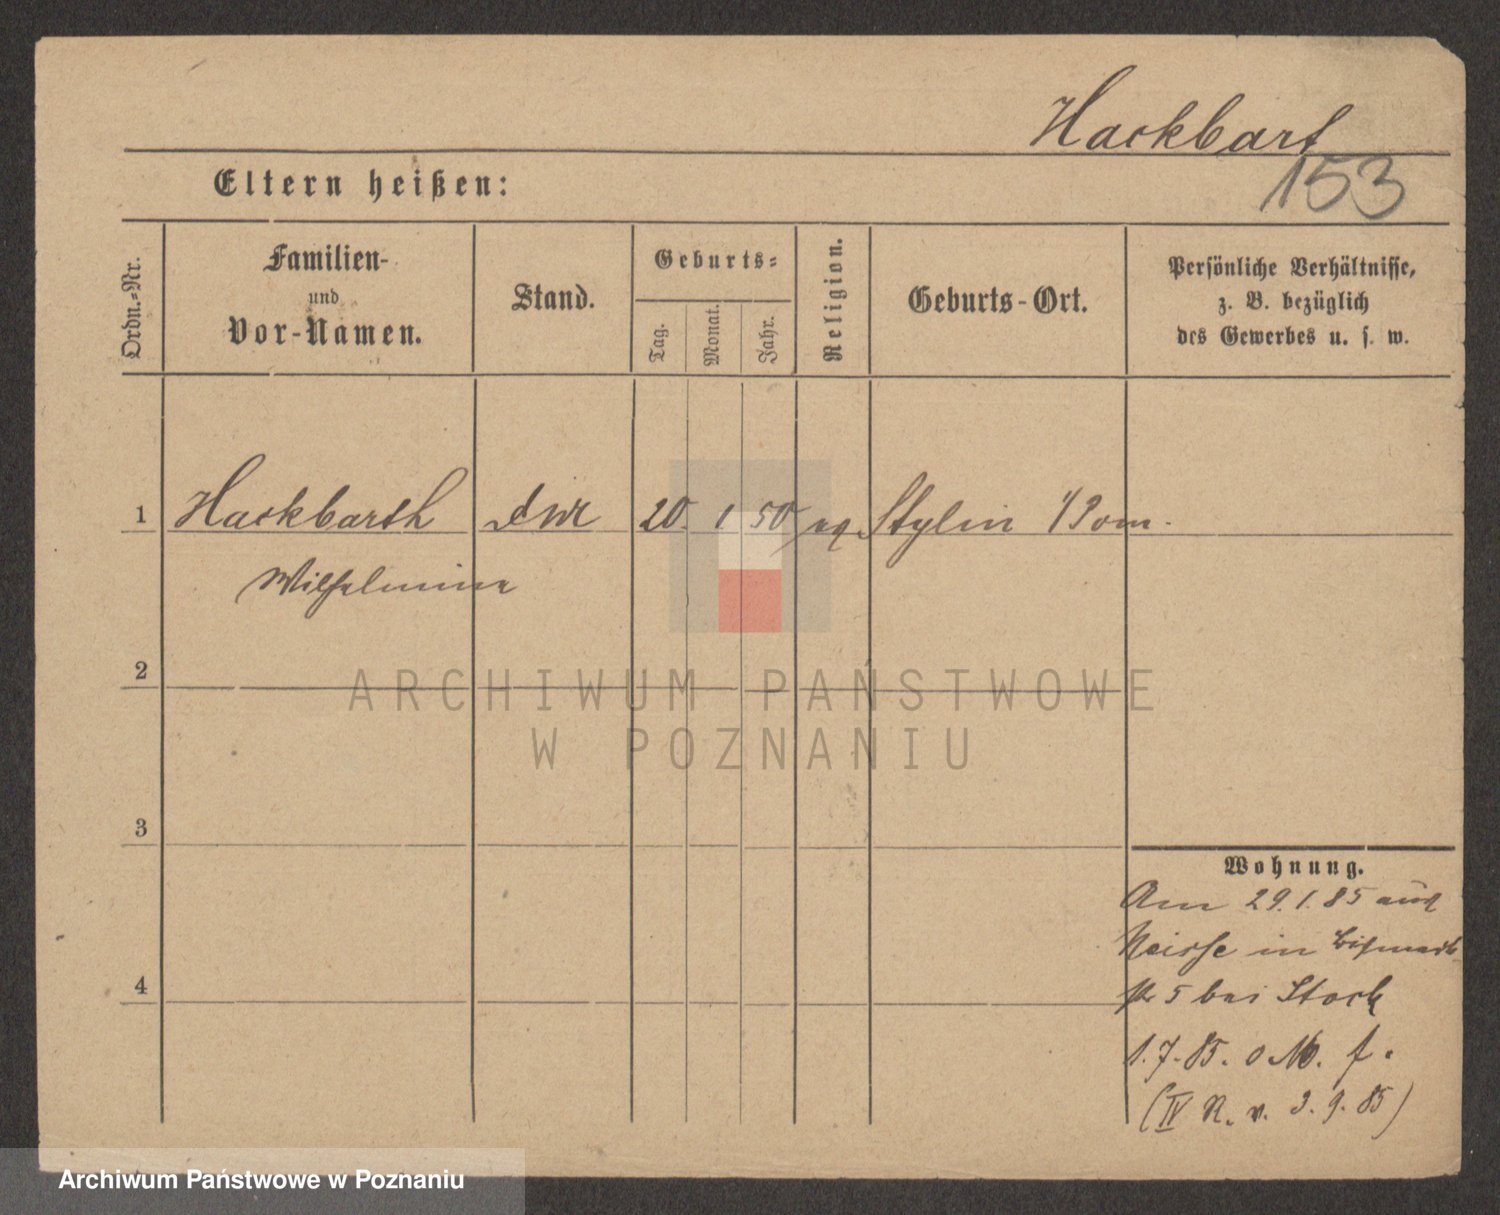 Hackbart
153
Eltern heißen:
Ordn.-Nr.
Familien-
und
Vor-Namen.
Stand.
Geburts-
Tag.
Monat.
Jahr.
Religion.
Geburts-Ort.
Persönliche Verhältnisse,
z. B. bezüglich
des Gewerbes u. s. w.
1 Hackbarth 20. 1 50 Pom.
Wilhelmine
2
ARCHIWUM PAŃSTWOWE
W POZNANIU
3
4
Wohnung.
Am 29.1.85 aus
Neisse in Bismark
5 bei Stock
1.7.85. o M. f.
(IV R. v. 3.9.85)
Archiwum Państwowe w Poznaniu